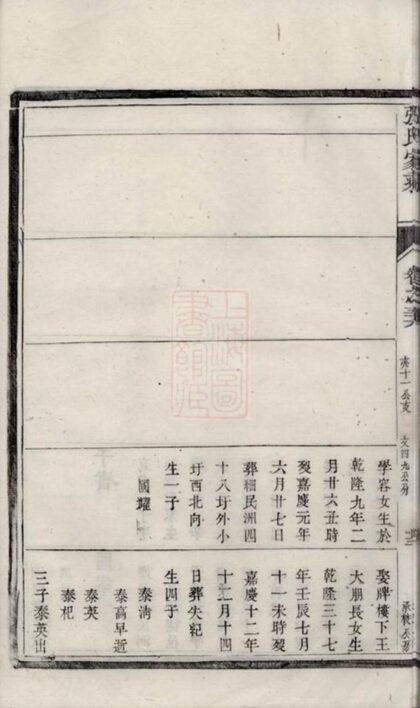 張氏家乘
卷之
十一公支
文四九公分
學容女生於
乾隆九年二
月廿六丑時
歿嘉慶元年
六月廿七日
葬細民洲四
十八圩外小
圩西北向
生一子
國耀
娶牌樓下王
大朋長女生
乾隆三十七
年壬辰七月
十一未時歿
嘉慶十二年
十二月十四
日葬失紀
生四子
泰淸
泰高早逝
泰英
泰杞
三子泰英出
上海圖
書館藏